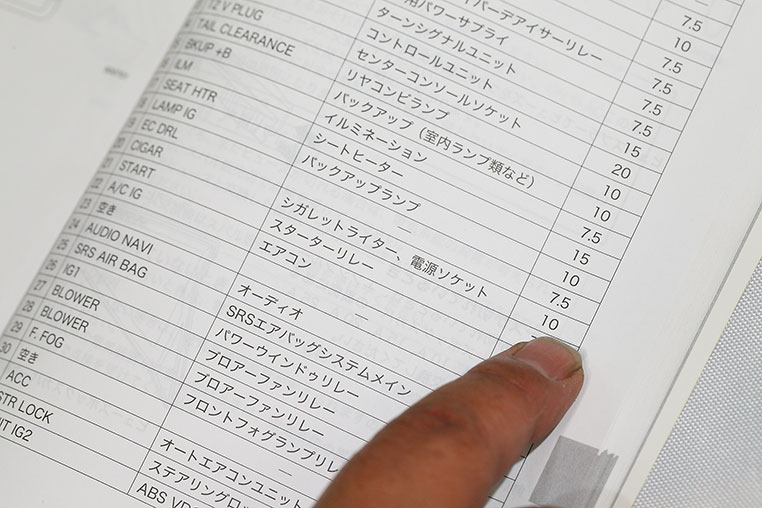 バーデアイサーリレー 7.5
用パワーサプライ 10
ターンシグナルユニット 7.5
コントロールユニット 7.5
12 V PLUG センターコンソールソケット 20
TAIL CLEARANCE リヤコンビランプ 10
BKUP +B バックアップ（室内ランプ類など） 10
ILM イルミネーション 7.5
SEAT HTR シートヒーター 15
18 LAMP IG バックアップランプ 10
19 EC DRL — 7.5
20 CIGAR シガレットライター、電源ソケット 10
21 START スターターリレー
22 A/C IG エアコン
23 空き —
24 AUDIO NAVI オーディオ
25 SRS AIR BAG SRSエアバッグシステムメイン
26 IG1 パワーウインドゥリレー
27 BLOWER ブロアーファンリレー
28 BLOWER ブロアーファンリレー
29 F. FOG フロントフォグランプリレ
30 空き —
ACC オートエアコンユニット
STR LOCK ステアリングロ
IT IG2 ABS VD